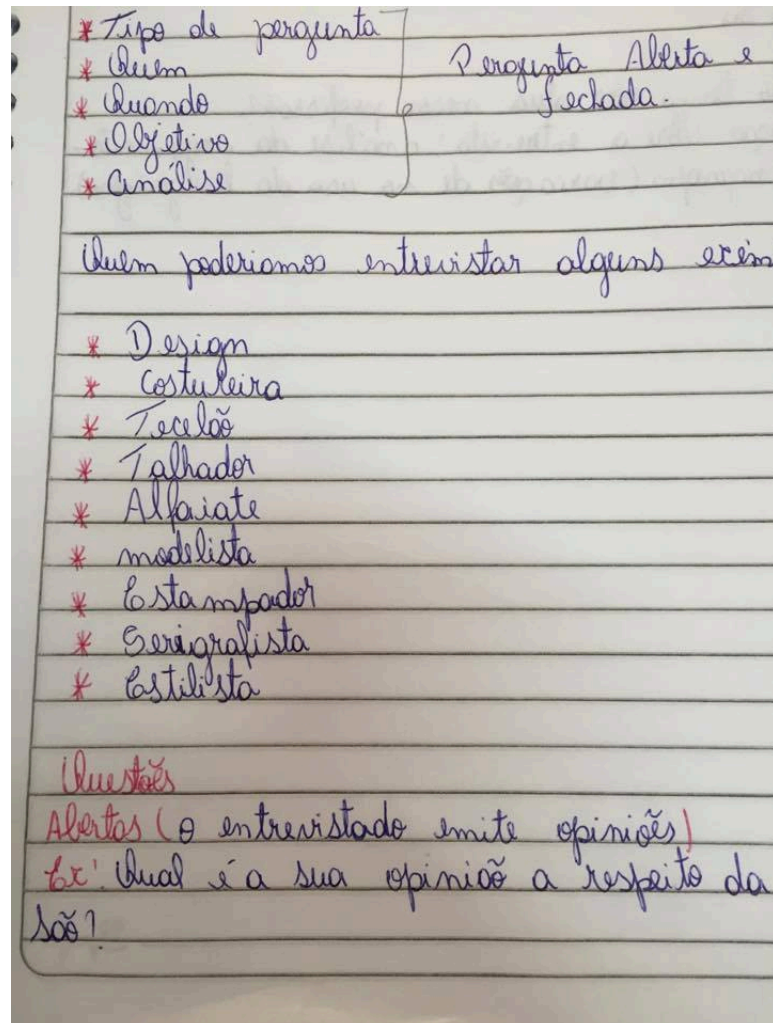 * Tipo de pergunta
* Quem
Pergunta Aberta e
* Quando
fechada.
* Objetivo
* análise
Quem poderiamos entrevistar alguns exêm
* Design
* Costureira
* Tecelão
* Talhador
* Alfaiate
* modelista
* Estampador
* Serigrafista
* Estilista
Questões
Abertas (o entrevistado emite opiniões)
Ex: Qual é a sua opinião a respeito da
são?